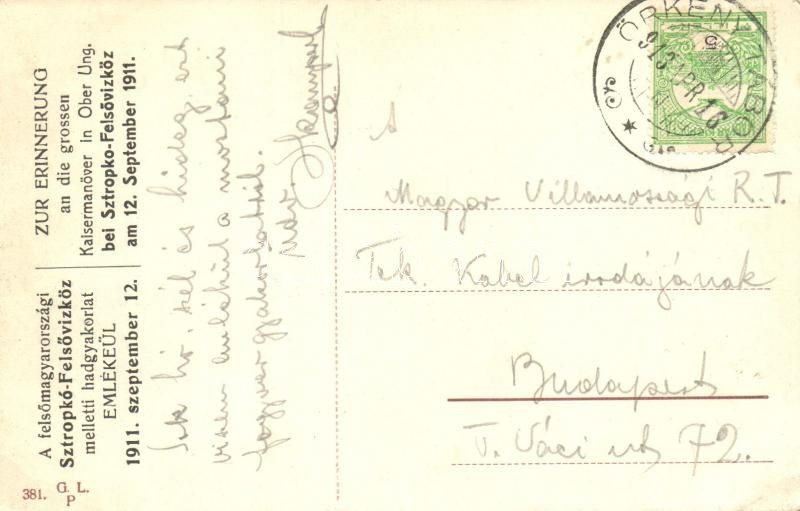 A felsőmagyarországi
Sztropkó-Felsővizköz
melletti hadgyakorlat
EMLÉKEÜL
1911. szeptember 12.
ZUR ERINNERUNG
an die grossen
Kaisermanöver in Ober Ung.
bei Sztropko-Felsővizköz
am 12. September 1911.
381. G. L.
P
Sok hó, szél és hideg, ezt
viszem emlékül a mostani
fegyvergyakorlatról.
Üdv.
ÖRKÉNYI TÁBOR
913 APR 16
A
Magyar Villamossági R. T.
Tek. Kábel irodájának
Budapest
V. Váci ut 72.